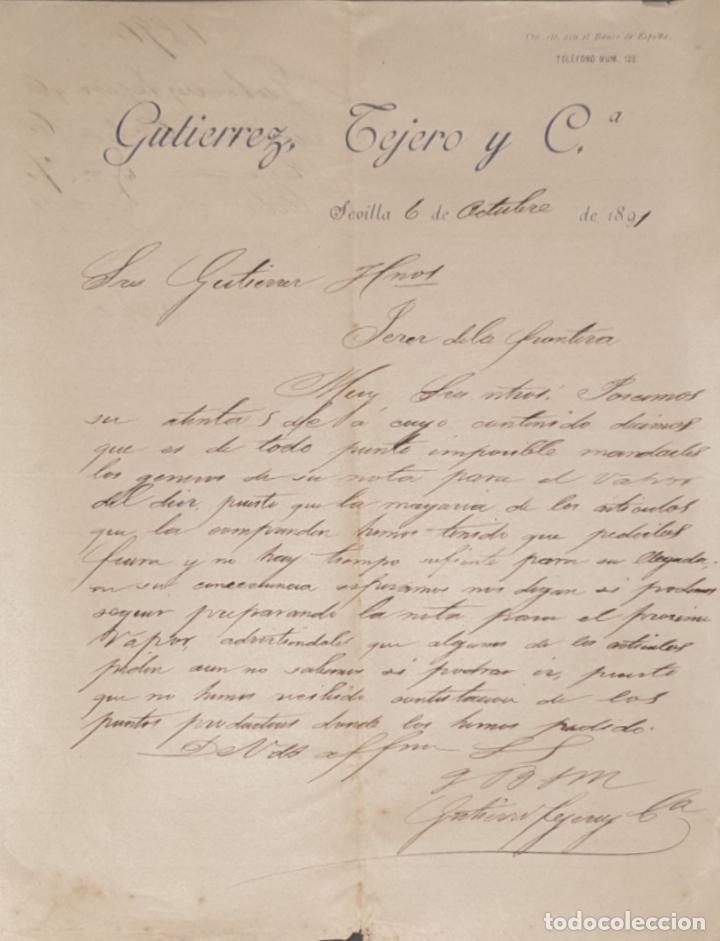 Cta. cte. con el Banco de España.
TELÉFONO NUM. 123
Gutierrez, Tejero y C.ª
Sevilla 6 de Octubre de 1891
Sres Gutierrez Hnos
Jerez dela frontera
Muy Sres ntros: Poseemos
su atenta 5 del á cuyo contenido decimos
que es de todo punto imposible mandarles
los generos de su nota para el vapor
del diez, puesto que la mayaria de los articulos
que la comprenden hemos tenido que pedirlos
fuera y no hay tiempo sufiente para su llegada,
en su concecuencia esperamos nos digan si podemos
seguir preparando la nota para el procsimo
vapor, advirtiendoles que algunos de los articulos
piden aun no sabemos si podran ir, puesto
que no hemos recibido contestacion de los
puntos productores donde los hemos pedido.
De Vds affmos SS
q B S M
Gutierrez Tejero y Ca
todocoleccion